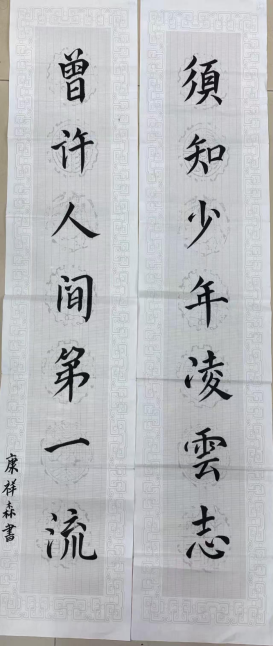 須知少年凌雲志
曾许人间第一流
康祥森書